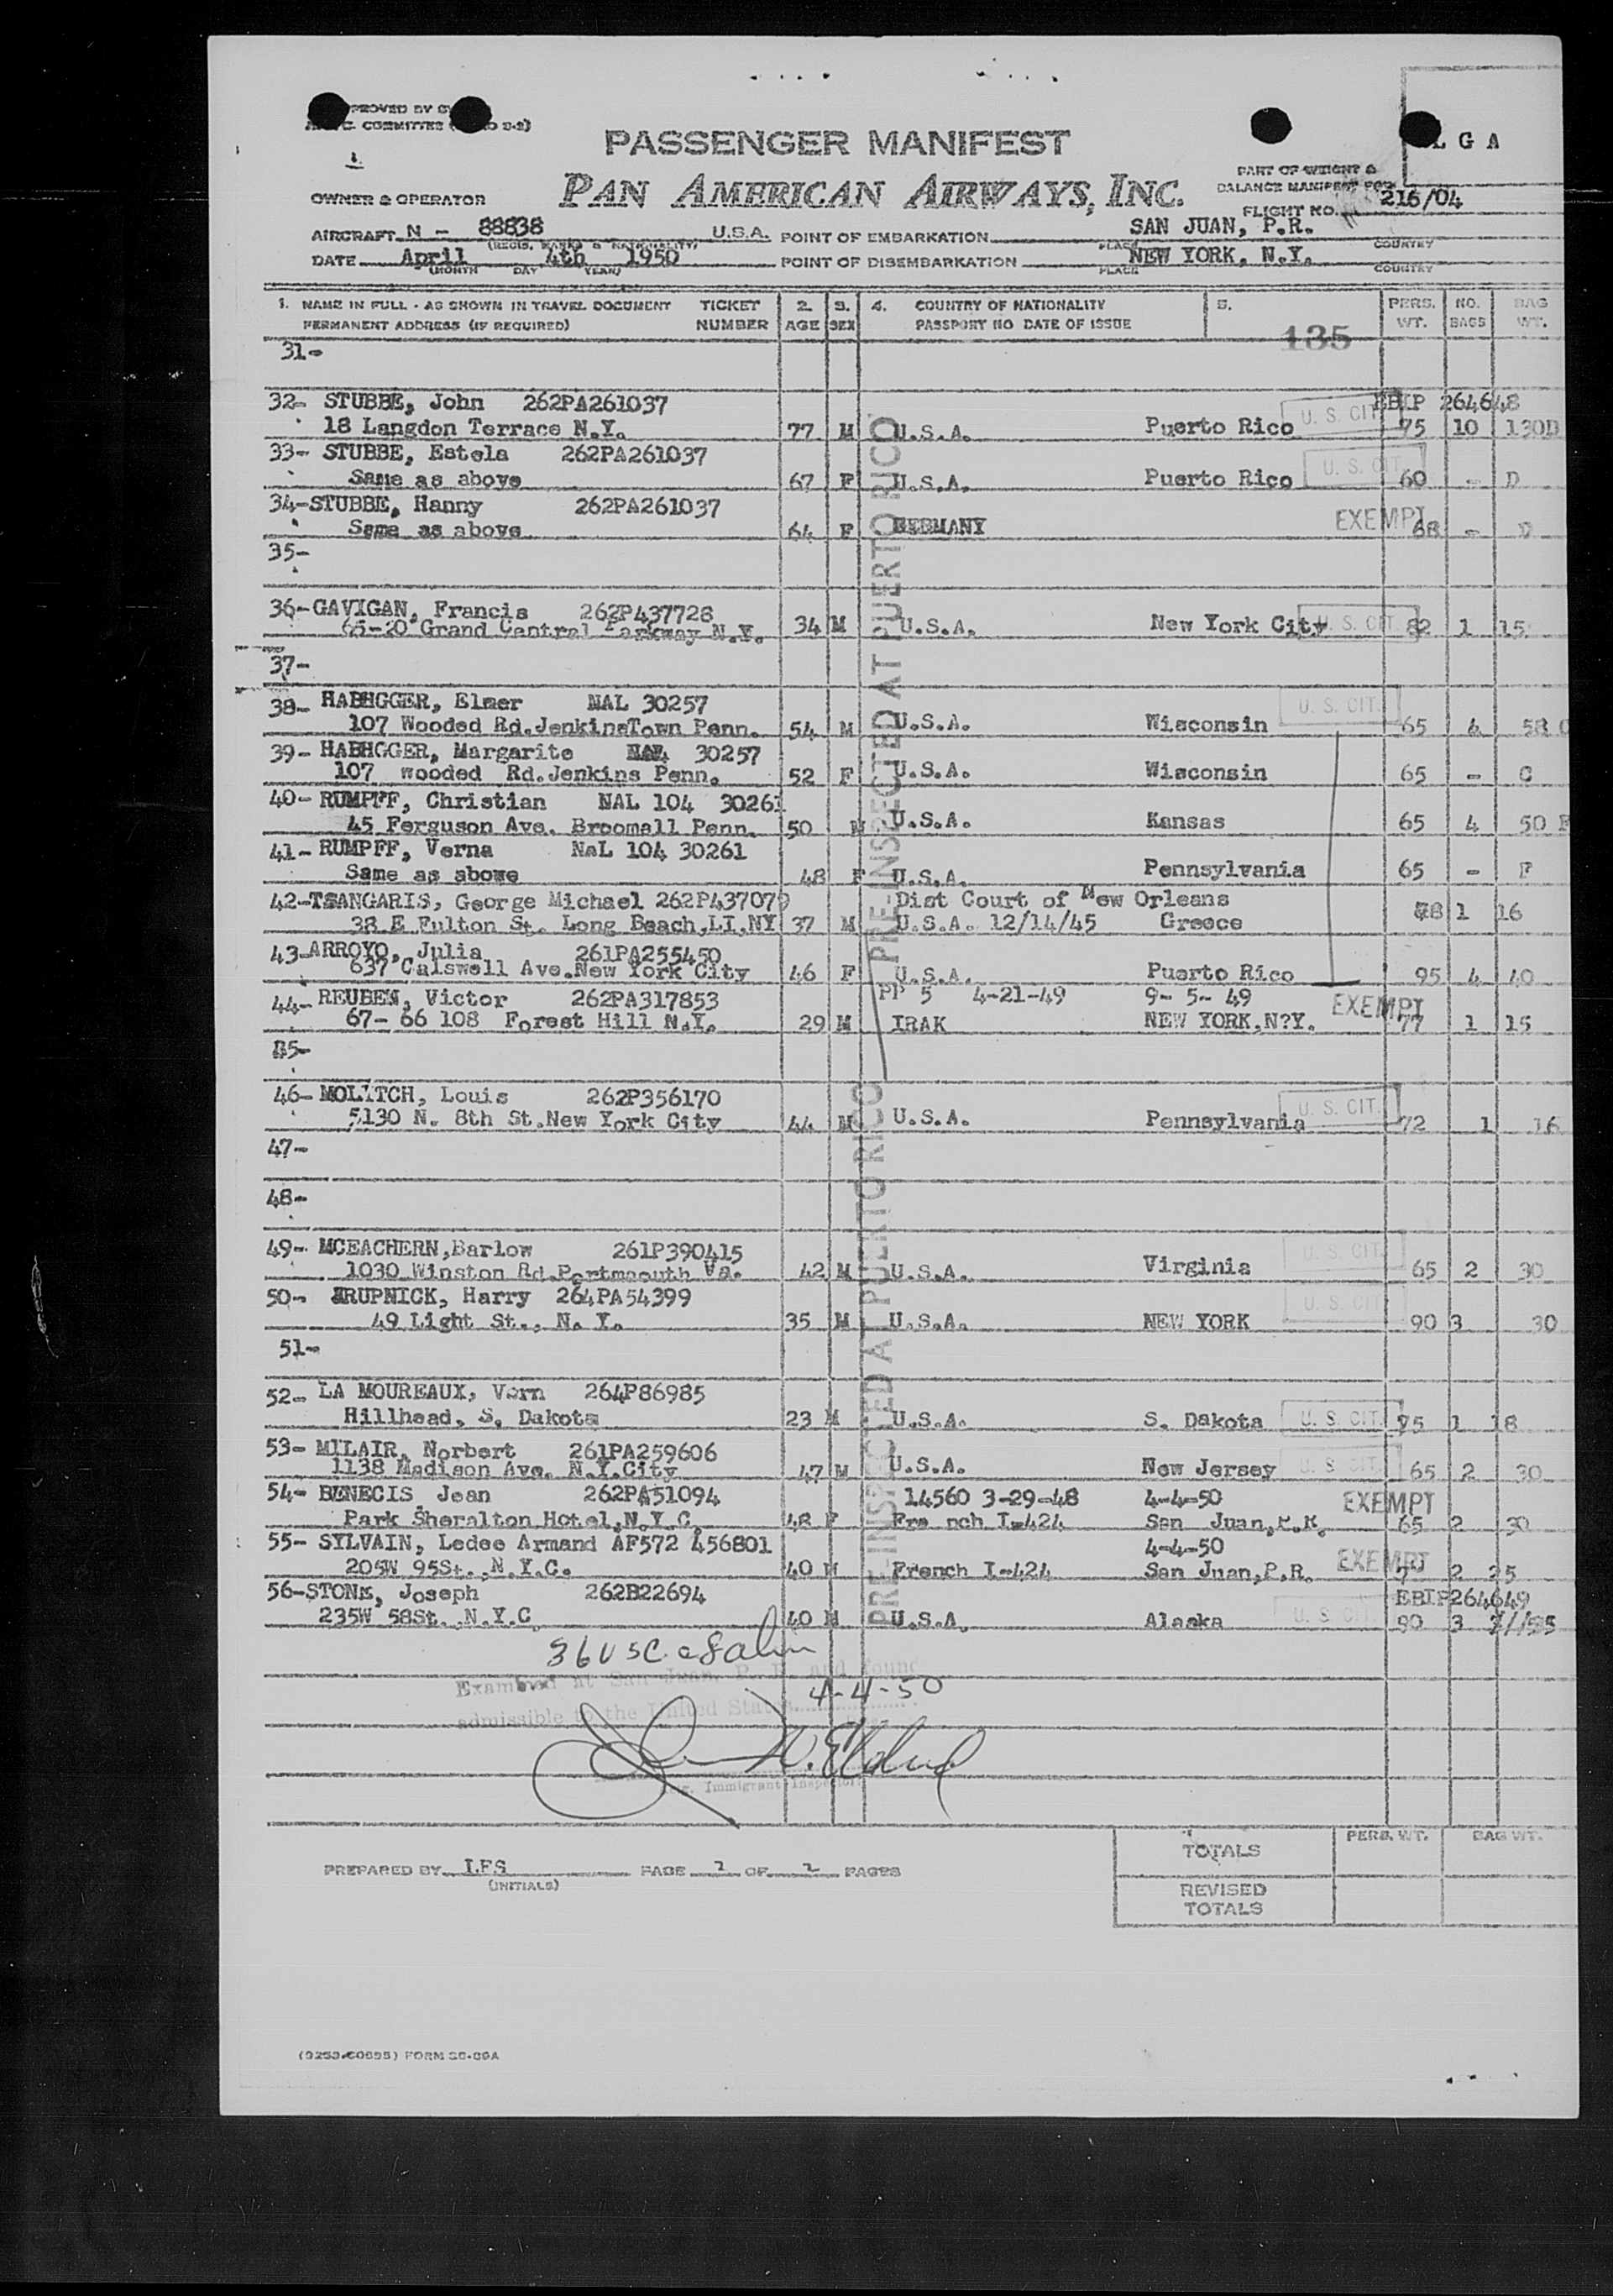 L G A
PASSENGER MANIFEST
PART OF WEIGHT &
BALANCE MANIFEST FOR
OWNER & OPERATOR PAN AMERICAN AIRWAYS, INC.
FLIGHT NO. 216/04
AIRCRAFT N - 88838 U.S.A. POINT OF EMBARKATION SAN JUAN, P.R.
(REGIS. MARKS & NATIONALITY) PLACE COUNTRY
DATE April 4th 1950 POINT OF DISEMBARKATION NEW YORK, N.Y.
(MONTH DAY YEAR) PLACE COUNTRY
1. NAME IN FULL - AS SHOWN IN TRAVEL DOCUMENT TICKET 2. 3. 4. COUNTRY OF NATIONALITY 5. PERS. NO. BAG
PERMANENT ADDRESS (IF REQUIRED) NUMBER AGE SEX PASSPORT NO DATE OF ISSUE WT. BAGS WT.
135
31-
32- STUBBE, John 262PA261037 EBIP 264648
18 Langdon Terrace N.Y. 77 M U.S.A. Puerto Rico U. S. CIT. 75 10 130D
33- STUBBE, Estela 262PA261037
Same as above 67 F U.S.A. Puerto Rico U. S. CIT. 60 - D
34-STUBBE, Hanny 262PA261037
Same as above 64 F GERMANY EXEMPT 68 - D
35-
36-GAVIGAN, Francis 262P437728
65-20 Grand Central Parkway N.Y. 34 M U.S.A. New York City U. S. CIT. 82 1 15
37-
38- HABHGGER, Elmer NAL 30257
107 Wooded Rd.JenkinsTown Penn. 54 M U.S.A. Wisconsin U. S. CIT. 65 4 58 C
39- HABHGGER, Margarite NAL 30257
107 wooded Rd.Jenkins Penn. 52 F U.S.A. Wisconsin 65 - C
40- RUMPFF, Christian NAL 104 30261
45 Ferguson Ave. Broomall Penn. 50 M U.S.A. Kansas 65 4 50 F
41- RUMPFF, Verna NaL 104 30261
Same as above 48 F U.S.A. Pennsylvania 65 - F
42-TSANGARIS, George Michael 262P437079 Dist Court of New Orleans
38 E Fulton St. Long Beach,LI,NY 37 M U.S.A. 12/14/45 Greece 78 1 16
43-ARROYO, Julia 261PA255450
637 Calswell Ave.New York City 46 F U.S.A. Puerto Rico 95 4 40
44- REUBEN, Victor 262PA317853 PP 5 4-21-49 9- 5- 49
67- 66 108 Forest Hill N.Y. 29 M IRAK NEW YORK,N?Y. EXEMPT 77 1 15
45-
46- MOLITCH, Louis 262P356170
5130 N. 8th St.New York City 44 M U.S.A. Pennsylvania U. S. CIT. 72 1 16
47-
48-
49- MCEACHERN,Barlow 261P390415
1030 Winston Rd.Portmsouth Va. 42 M U.S.A. Virginia U. S. CIT. 65 2 30
50- KRUPNICK, Harry 264PA54399
49 Light St., N. Y. 35 M U.S.A. NEW YORK U. S. CIT. 90 3 30
51-
52- LA MOUREAUX, Vern 264P86985
Hillhead, S. Dakota 23 M U.S.A. S. Dakota U. S. CIT. 75 1 18
53- MILAIR, Norbert 261PA259606
1138 Madison Ave. N.Y.City 47 M U.S.A. New Jersey U. S. CIT. 65 2 30
54- BENECIS, Jean 262PA51094 14560 3-29-48 4-4-50
Park Sheralton Hotel,N.Y.C. 48 F Fre nch I-424 San Juan,P.R. EXEMPT 65 2 30
55- SYLVAIN, Ledee Armand AF572 456801 4-4-50
205W 95St., N.Y.C. 40 M French I-424 San Juan,P.R. EXEMPT 2 25
56-STONE, Joseph 262B22694 EBIP264649
235W 58St. ,N.Y.C 40 M U.S.A. Alaska U. S. CIT. 90 3
PRE-INSPECTED AT PUERTO RICO
PRE-INSPECTED AT PUERTO RICO
36 USC
Examined at San Juan, P. R. and found
4-4-50
admissible to the United States
Immigrant Inspector
TOTALS PERS. WT. BAG WT.
PREPARED BY LFS PAGE 2 OF 2 PAGES
(INITIALS)
REVISED
TOTALS